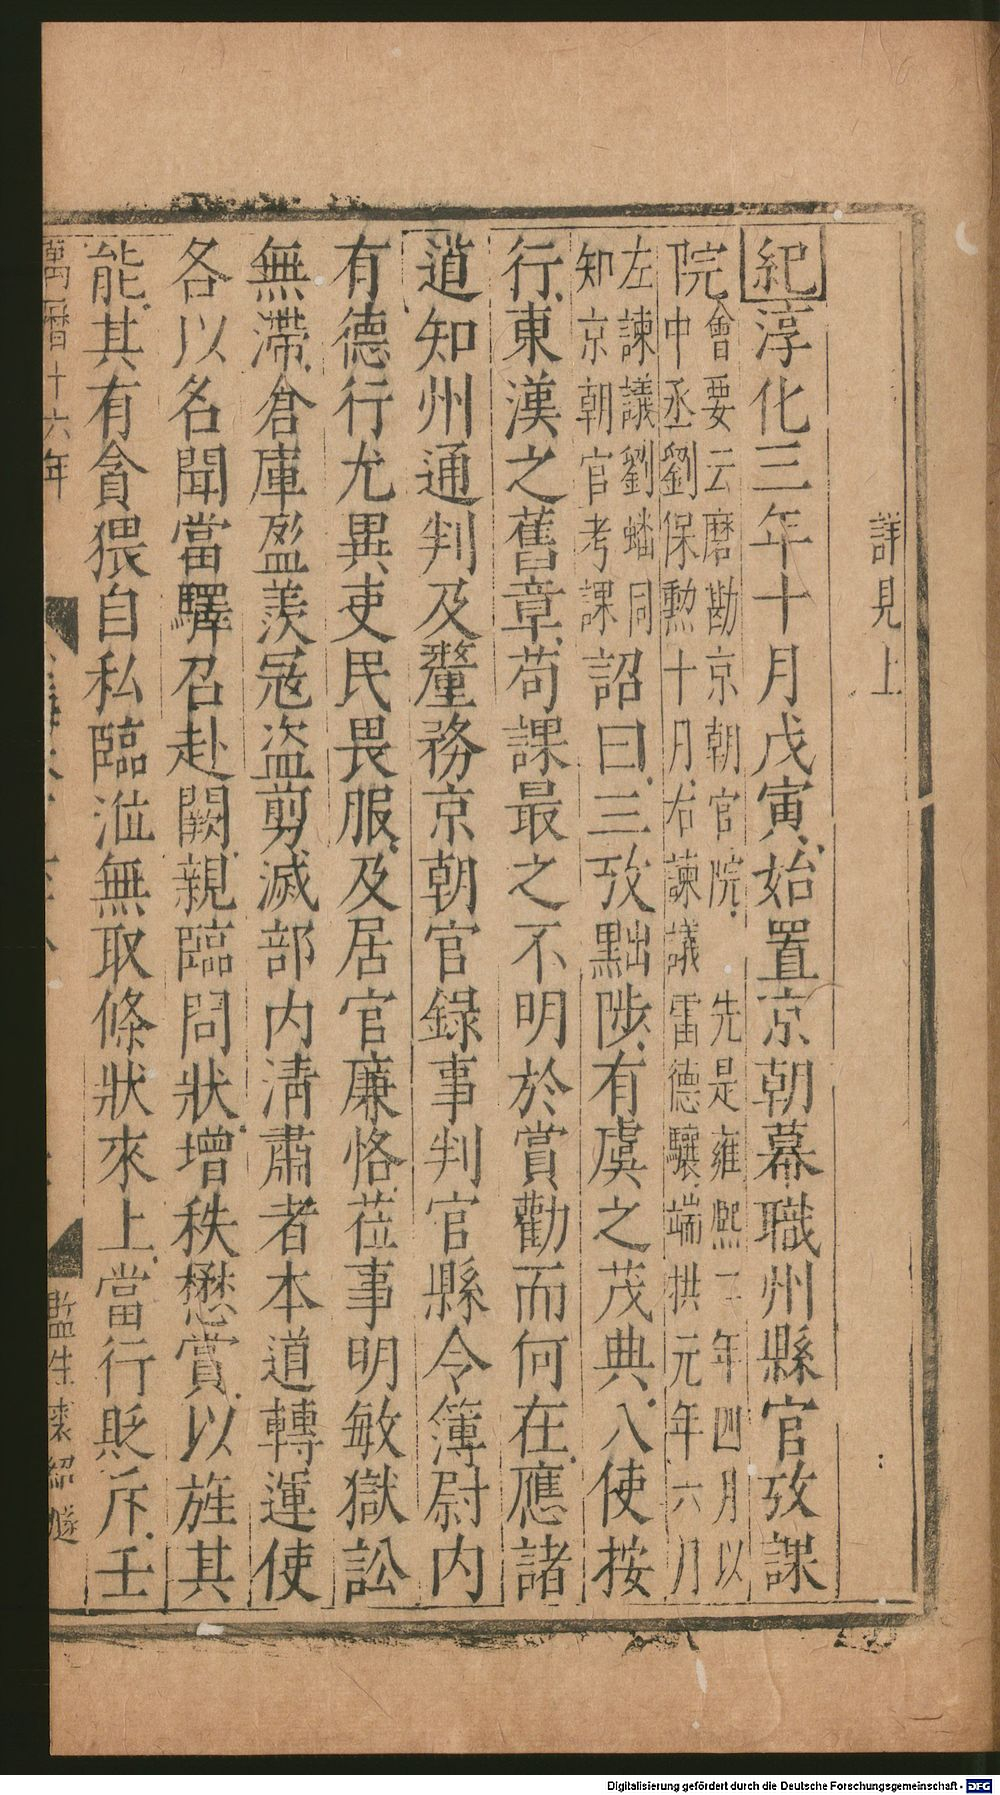 詳見上
紀淳化三年十月戊寅始置京朝幕職州縣官攷課
院會要云磨勘京朝官院先是雍熙二年四月以
中丞劉保勲十月右諫議雷德驤端拱元年六月
左諫議劉蟠同
知京朝官考課
詔曰三攷黜陟有虞之茂典八使按
行東漢之舊章苟課最之不明於賞勸而何在應諸
道知州通判及釐務京朝官錄事判官縣令簿尉内
有德行尤異吏民畏服及居官廉恪莅事明敏獄訟
無滯倉庫盈羨冦盜剪滅部内清肅者本道轉運使
各以名聞當驛召赴闕親臨問狀增秩懋賞以旌其
能其有貪猥自私臨涖無取條狀來上當行貶斥壬
萬曆十六年
監生裘紹𤏖
Digitalisierung gefördert durch die Deutsche Forschungsgemeinschaft - DFG